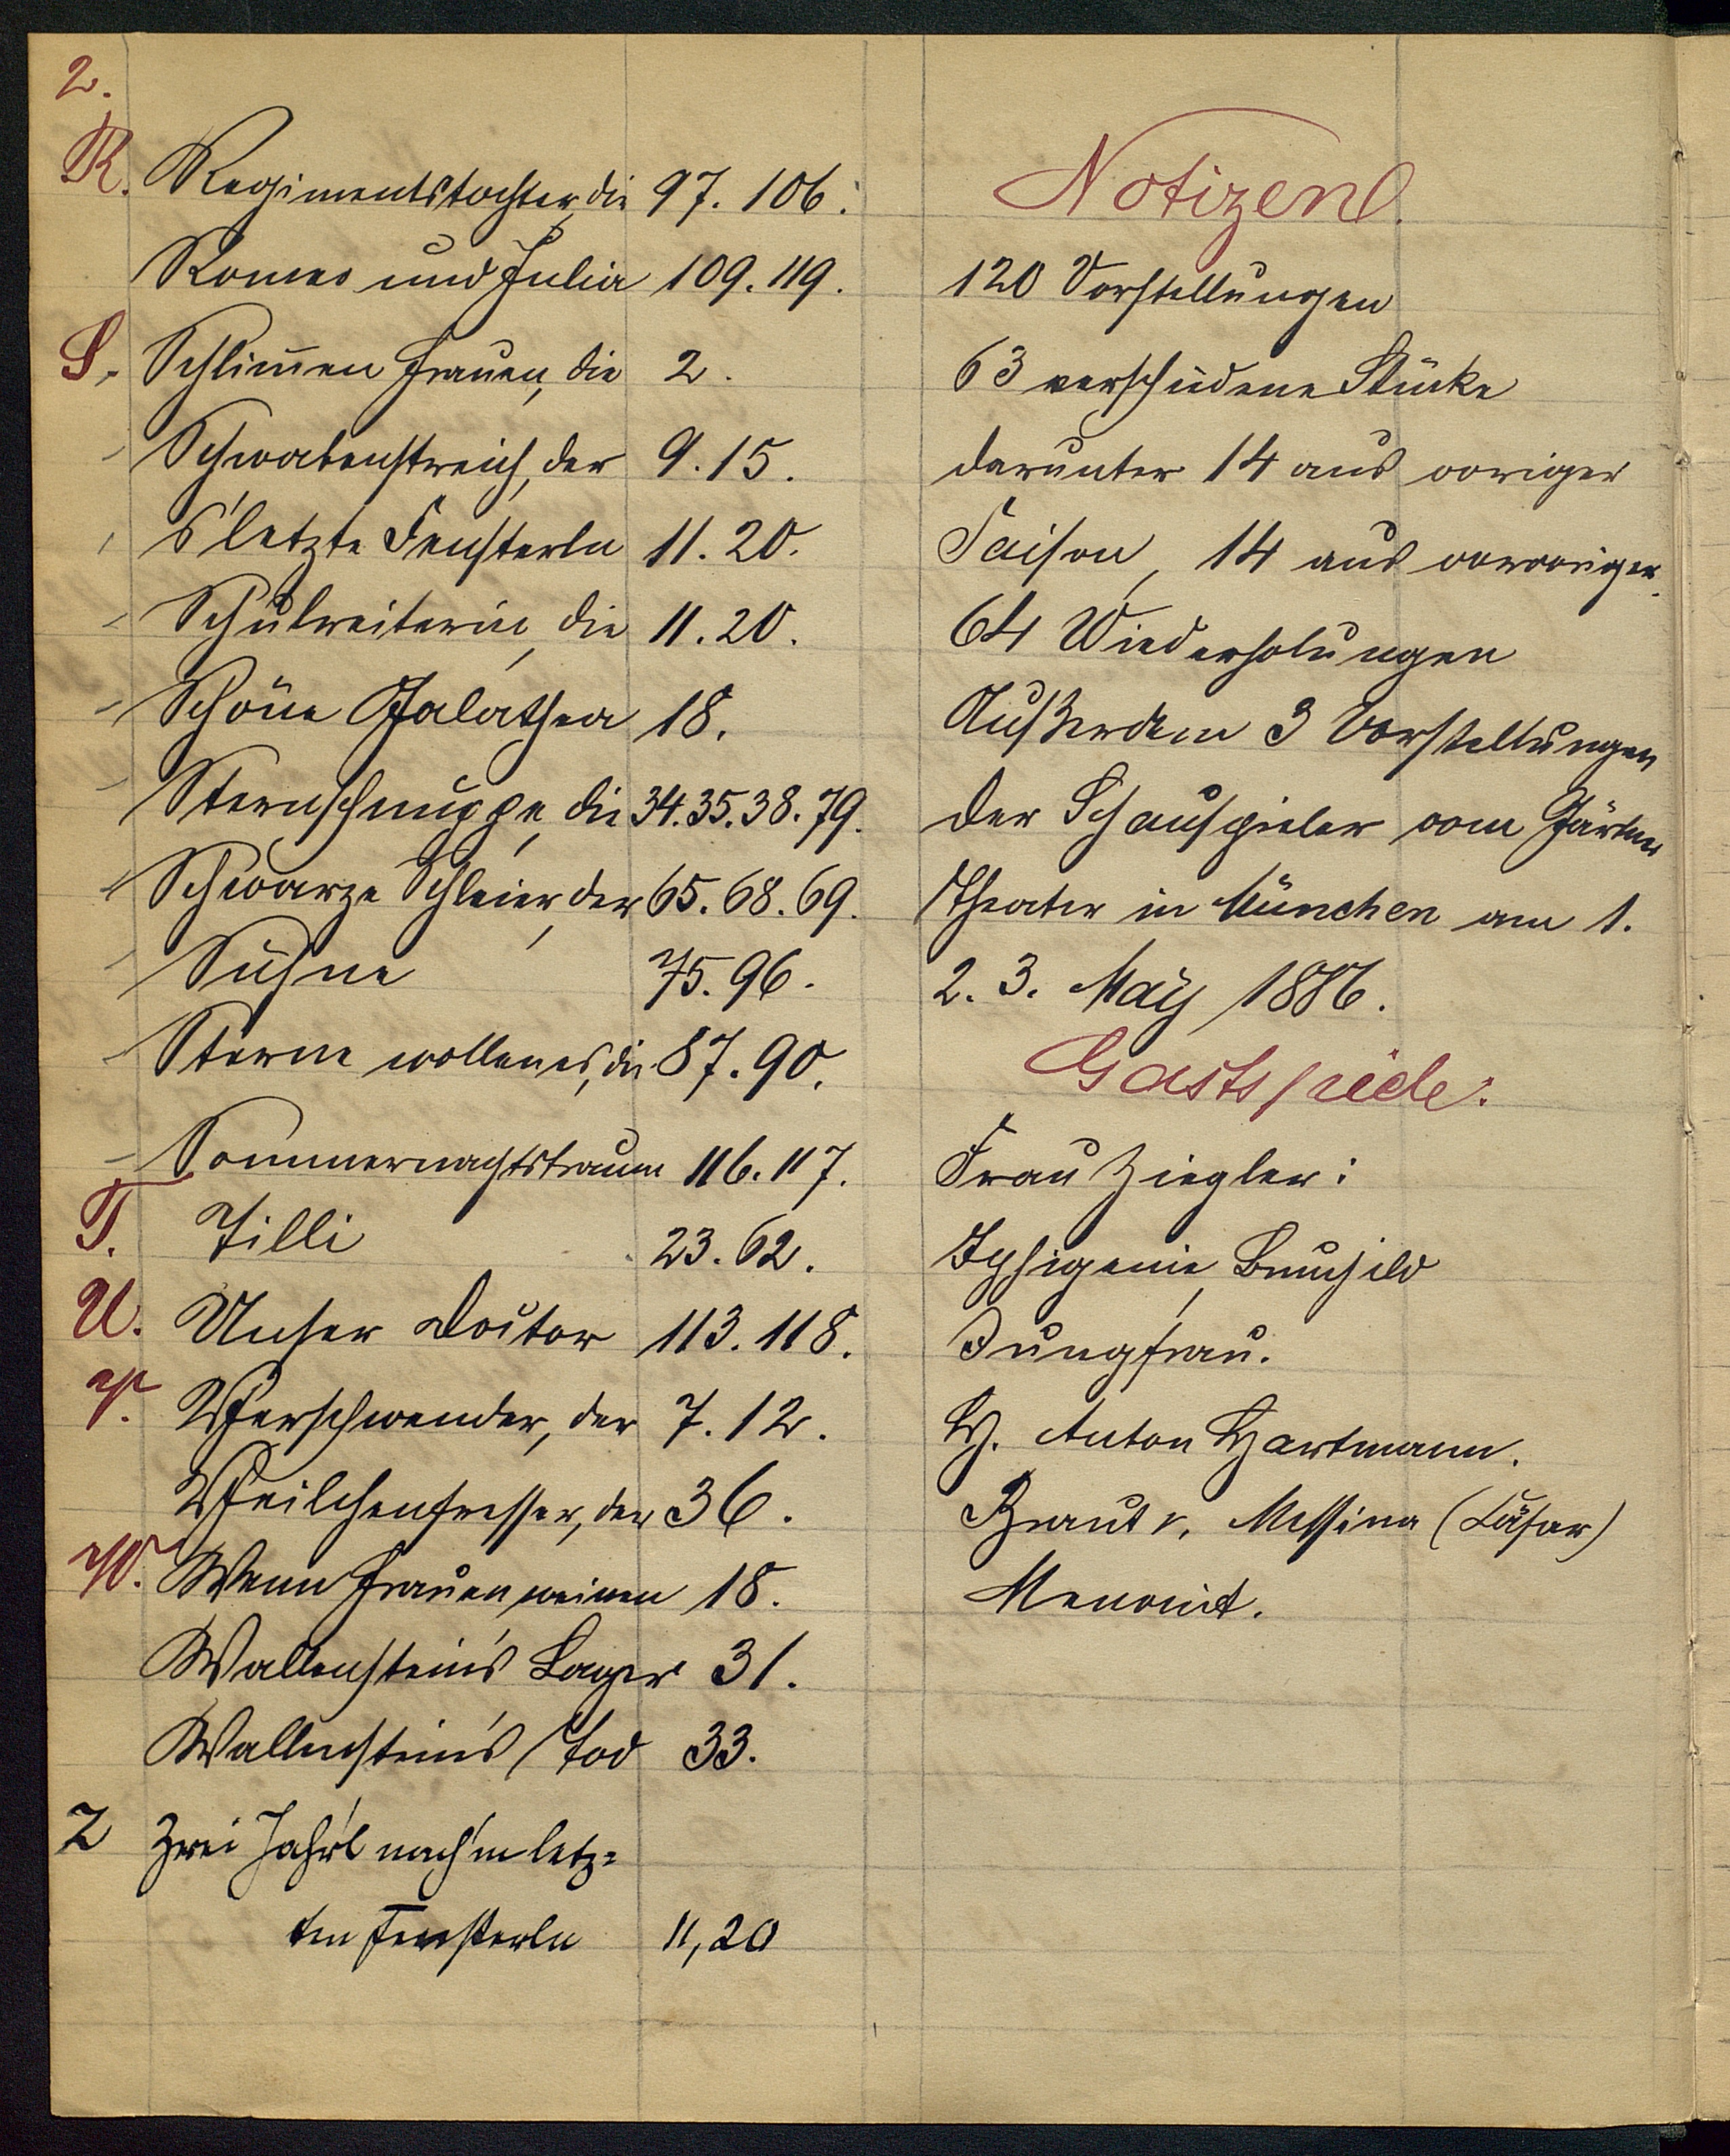 2.
R. Regimentstochter, die 97. 106.
Romeo und Julia 109. 119.
S. Schlim̄en Frauen, die 2.
- Schwabenstreich, der 9. 15.
- s'letzte Fensterln 11. 20.
- Schulreiterin, die 11. 20.
- Schöne Galathea 18.
- Sternschnuppe, die 34. 35. 38. 79.
- Schwarze Schleier, der 65. 68. 69.
- Sühne 75. 96.
- Sterne wollen es, die 87. 90.
- Sommernachtstraum 116. 117.
T. Tilli 23. 62.
U. Unser Doctor 113. 118.
V. Verschwender, der 7. 12.
Veilchenfresser, der 36.
W. Wenn Frauen weinen 18.
Wallenstein's Lager 31.
Wallenstein's Tod 33.
Z Zwei Jahr'l nach'm letz=
ten Fensterln 11, 20
Notizen.
120 Vorstellungen
63 verschiedene Stücke
darunter 14 aus voriger
Saison, 14 aus vorvoriger.
64 Wiederholungen
Außerdem 3 Vorstellungen
der Schauspieler vom Gärtner
Theater in München am 1.
2. 3. May 1886.
Gastspiele.
Frau Ziegler:
Iphigenie, Brunhild
Jungfrau.
H. Anton Hartmann.
Braut v. Messina (Cäsar)
Menonit.